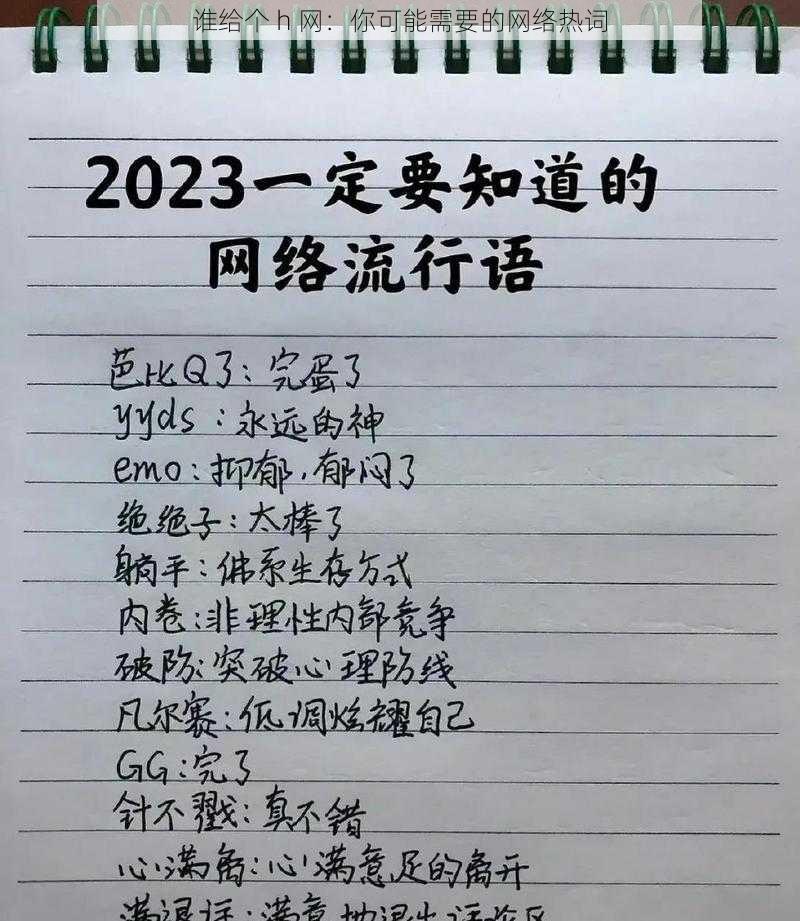 谁给个 h 网：你可能需要的网络热词
2023一定要知道的
网络流行语
芭比Q了：完蛋了
yyds：永远的神
emo：抑郁，郁闷了
绝绝子：太棒了
躺平：佛系生存方式
内卷：非理性内部竞争
破防：突破心理防线
凡尔赛：低调炫耀自己
GG：完了
针不戳：真不错
心满离：心满意足的离开